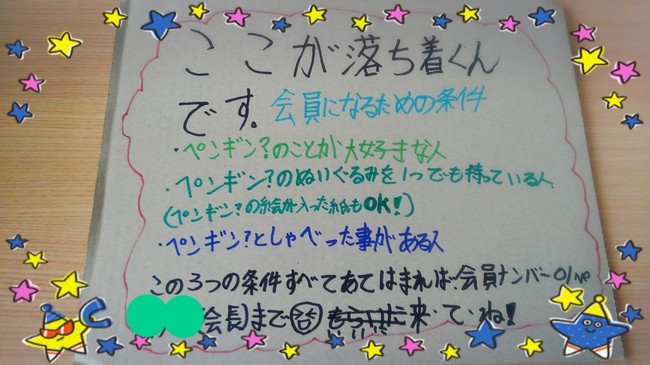 ここが落ち着くん
です。会員になるための条件
・ペンギン?のことが大好きな人
・ペンギン?のぬいぐるみを1つでも持っている人
(ペンギン?の絵が入った紙もOK!)
・ペンギン?としゃべった事がある人
この3つの条件すべてあてはまれば会員ナンバー
会長まで 来てね!